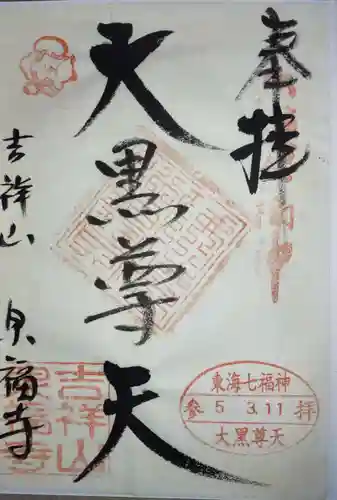 奉拝
大黒尊天
吉祥山 泉福寺
東海七福神
参 5 3.11 拝
大黒尊天
吉祥山
泉福寺